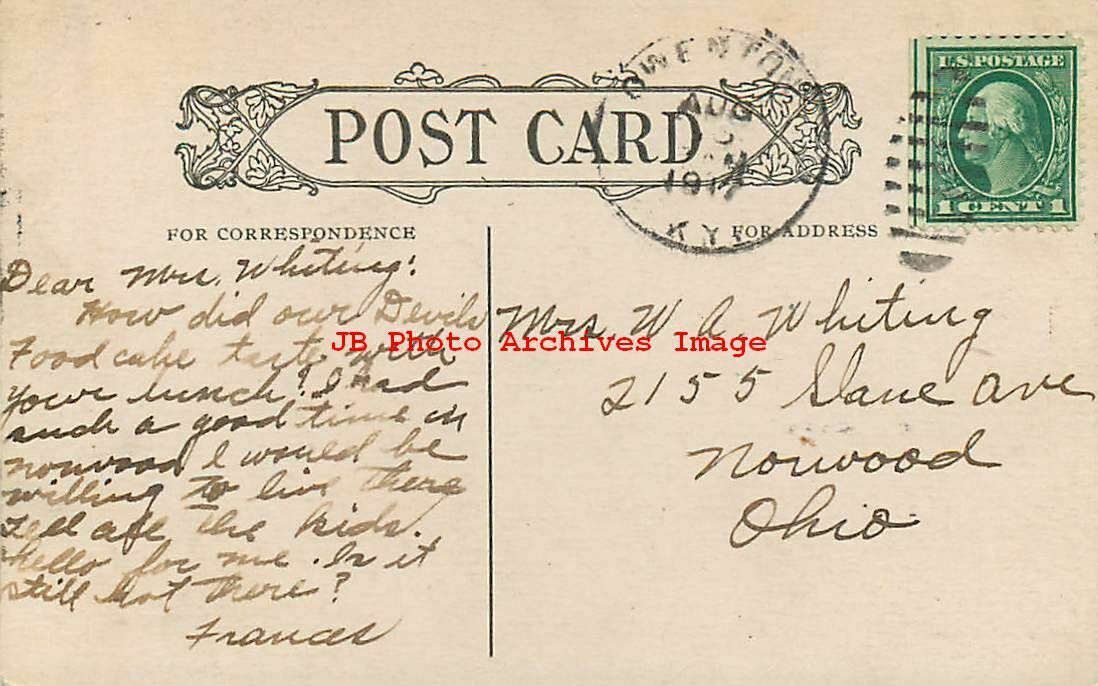 POST CARD
OWENTON
AUG
191
KY.
U.S. POSTAGE
1 CENT 1
FOR CORRESPONDENCE
FOR ADDRESS
Dear Mrs. Whiting:
How did our Devils
Food cake taste with
your lunch? I had
such a good time in
norwood I would be
willing to live there
Tell all the kids.
hello for me. Is it
still hot there?
Frances
Mrs W A Whiting
2155 Slane ave
Norwood
Ohio
JB Photo Archives Image